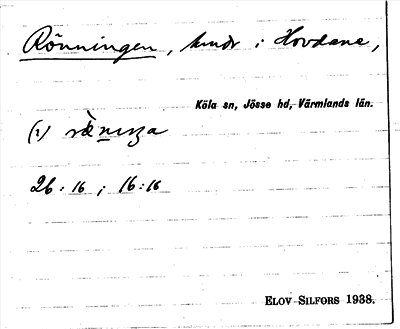 Rönningen, i Hovdane,
Köla sn, Jösse hd, Värmlands län.
(1)
26:16; 16:16
ELOV SILFORS 1938.